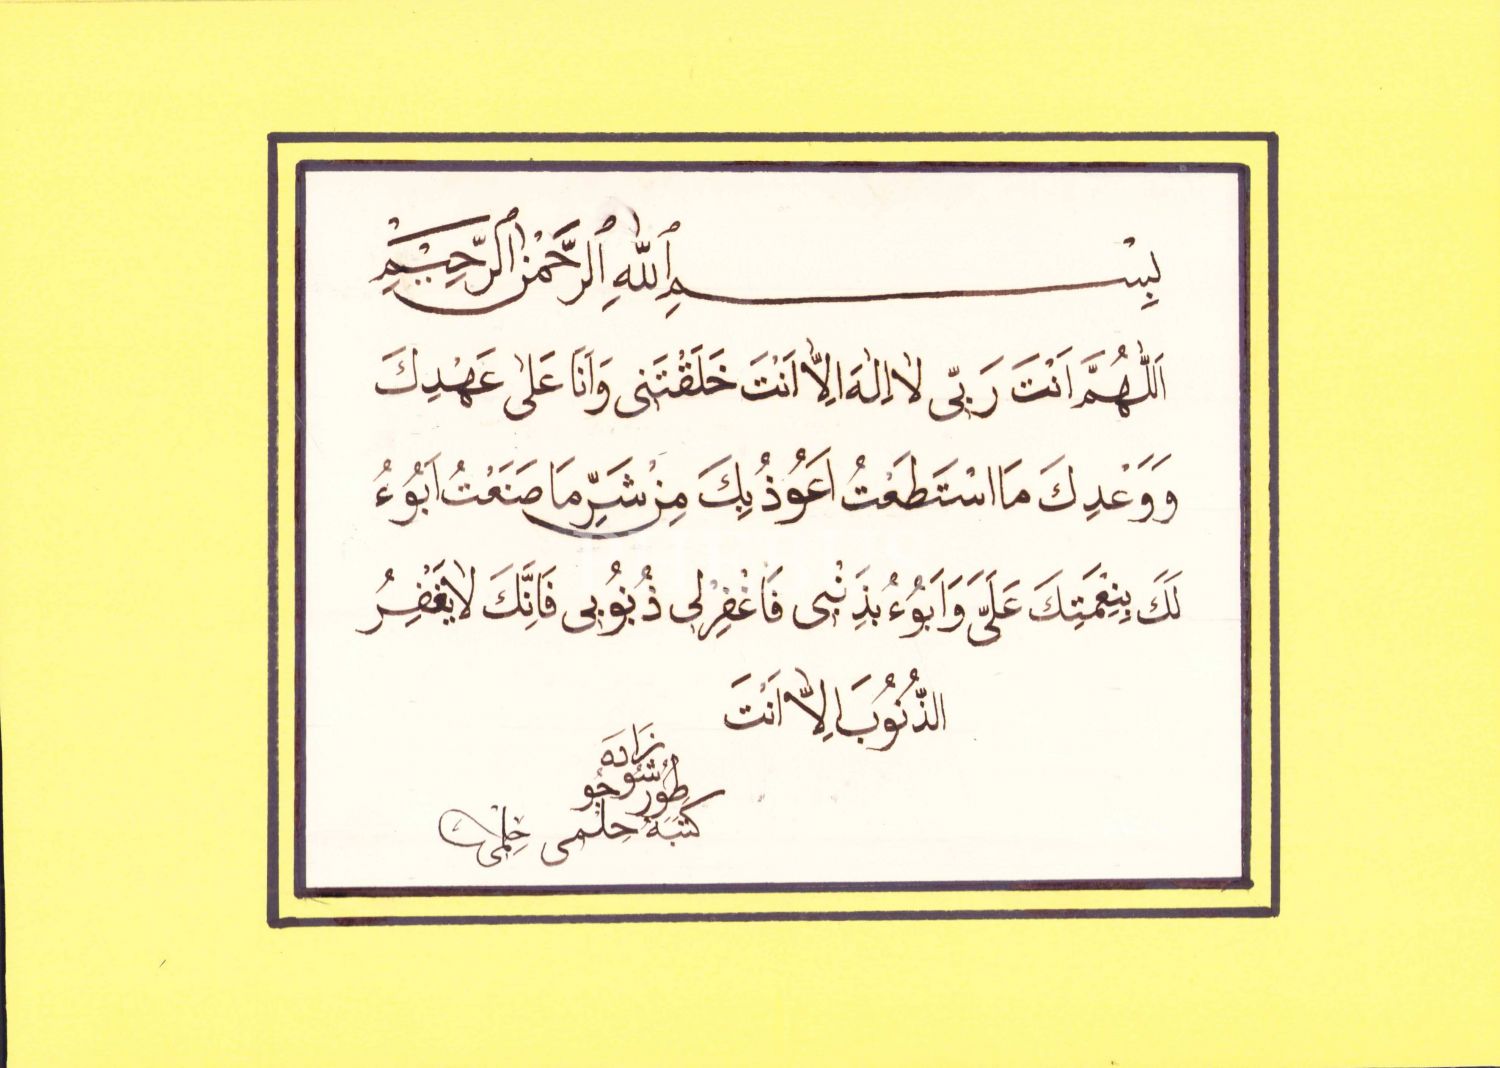 بِسْمِ ٱللّٰهِ ٱلرَّحْمٰنِ ٱلرَّحِيْمِ
اَللّٰهُمَّ اَنْتَ رَبِّى لَا اِلٰهَ اِلَّا اَنْتَ خَلَقْتَنِى وَاَنَا عَلٰى عَهْدِكَ
وَوَعْدِكَ مَا اسْتَطَعْتُ اَعُوْذُ بِكَ مِنْ شَرِّ مَا صَنَعْتُ اَبُوْءُ
لَكَ بِنِعْمَتِكَ عَلَيَّ وَاَبُوْءُ بِذَنْبِى فَاغْفِرْلِى ذُنُوْبِى فَاِنَّكَ لَا يَغْفِرُ
الذُّنُوْبَ اِلَّا اَنْتَ
زَادَه
طُورْشُوجُو
كَتَبَهُ حِلْمِى حلمى